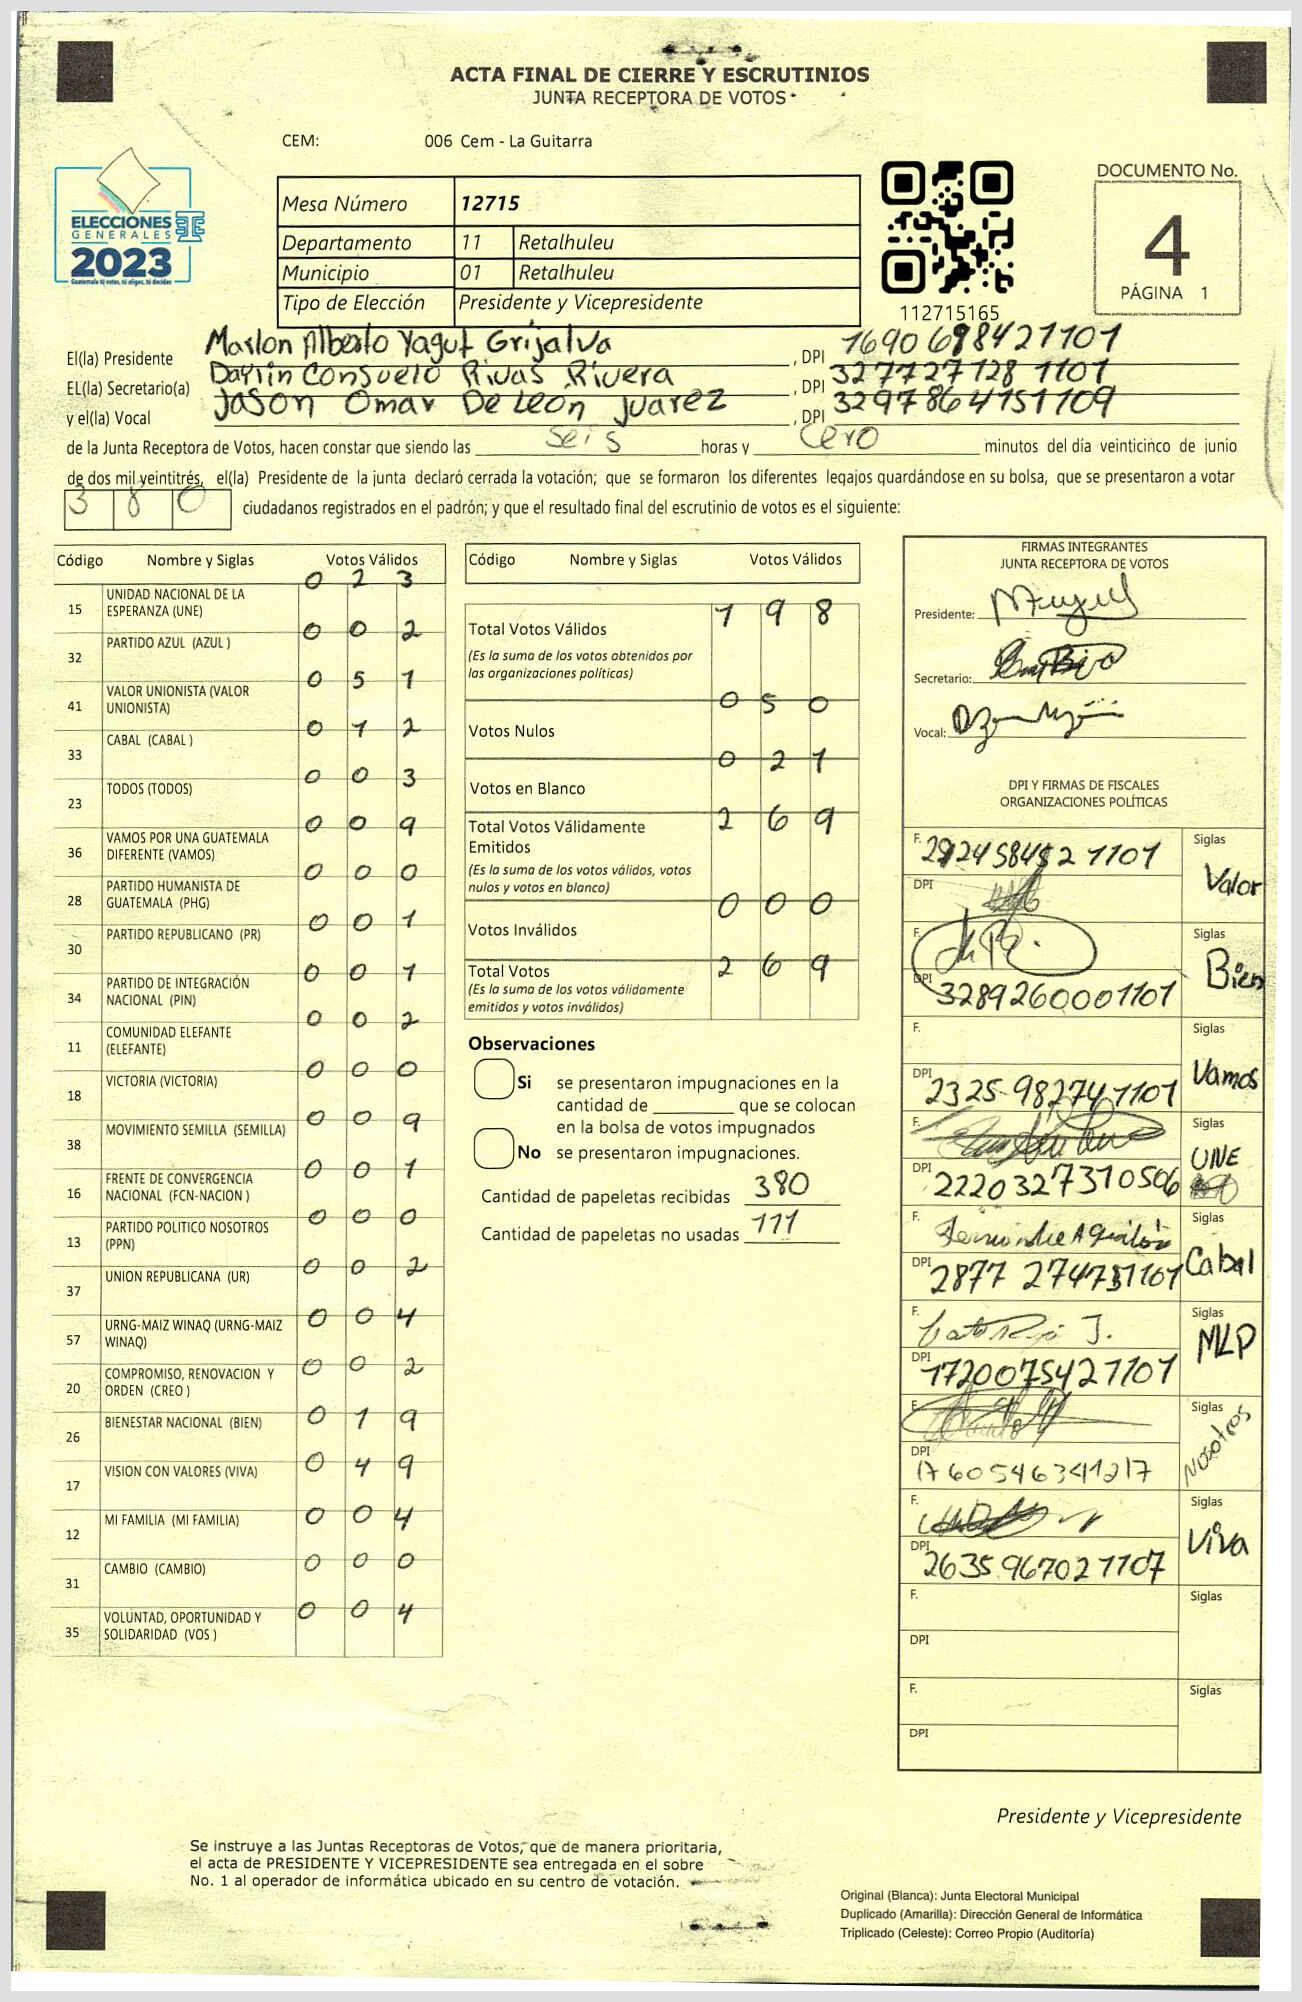 ACTA FINAL DE CIERRE Y ESCRUTINIOS
JUNTA RECEPTORA DE VOTOS
CEM: 006 Cem - La Guitarra
ELECCIONES
GENERALES
2023
Guatemala tú votas, tú eliges, tú decides
Mesa Número 12715
Departamento 11 Retalhuleu
Municipio 01 Retalhuleu
Tipo de Elección Presidente y Vicepresidente
112715165
DOCUMENTO No.
4
PÁGINA 1
El(la) Presidente Marlon Alberto Yagut Grijalva, DPI 1690698421101
EL(la) Secretario(a) Daylin Consuelo Rivas Rivera, DPI 3277271281101
y el(la) Vocal Jason Omar De Leon Juarez, DPI 3297864151109
de la Junta Receptora de Votos, hacen constar que siendo las seis horas y cero minutos del día veinticinco de junio
de dos mil veintitrés, el(la) Presidente de la junta declaró cerrada la votación; que se formaron los diferentes legajos guardándose en su bolsa, que se presentaron a votar
380 ciudadanos registrados en el padrón; y que el resultado final del escrutinio de votos es el siguiente:
Código Nombre y Siglas Votos Válidos
15 UNIDAD NACIONAL DE LA ESPERANZA (UNE) 0 2 3
32 PARTIDO AZUL (AZUL ) 0 0 2
41 VALOR UNIONISTA (VALOR UNIONISTA) 0 5 1
33 CABAL (CABAL ) 0 1 2
23 TODOS (TODOS) 0 0 3
36 VAMOS POR UNA GUATEMALA DIFERENTE (VAMOS) 0 0 9
28 PARTIDO HUMANISTA DE GUATEMALA (PHG) 0 0 0
30 PARTIDO REPUBLICANO (PR) 0 0 1
34 PARTIDO DE INTEGRACIÓN NACIONAL (PIN) 0 0 1
11 COMUNIDAD ELEFANTE (ELEFANTE) 0 0 2
18 VICTORIA (VICTORIA) 0 0 0
38 MOVIMIENTO SEMILLA (SEMILLA) 0 0 9
16 FRENTE DE CONVERGENCIA NACIONAL (FCN-NACION ) 0 0 1
13 PARTIDO POLITICO NOSOTROS (PPN) 0 0 0
37 UNION REPUBLICANA (UR) 0 0 2
57 URNG-MAIZ WINAQ (URNG-MAIZ WINAQ) 0 0 4
20 COMPROMISO, RENOVACION Y ORDEN (CREO ) 0 0 2
26 BIENESTAR NACIONAL (BIEN) 0 1 9
17 VISION CON VALORES (VIVA) 0 4 9
12 MI FAMILIA (MI FAMILIA) 0 0 4
31 CAMBIO (CAMBIO) 0 0 0
35 VOLUNTAD, OPORTUNIDAD Y SOLIDARIDAD (VOS ) 0 0 4
Código Nombre y Siglas Votos Válidos
Total Votos Válidos 1 9 8
(Es la suma de los votos obtenidos por
las organizaciones políticas)
Votos Nulos 0 5 0
Votos en Blanco 0 2 1
Total Votos Válidamente
Emitidos 2 6 9
(Es la suma de los votos válidos, votos
nulos y votos en blanco)
Votos Inválidos 0 0 0
Total Votos 2 6 9
(Es la suma de los votos válidamente
emitidos y votos inválidos)
Observaciones
Si se presentaron impugnaciones en la
cantidad de ________ que se colocan
en la bolsa de votos impugnados
No se presentaron impugnaciones.
Cantidad de papeletas recibidas 380
Cantidad de papeletas no usadas 111
FIRMAS INTEGRANTES
JUNTA RECEPTORA DE VOTOS
Presidente:
Secretario:
Vocal:
DPI Y FIRMAS DE FISCALES
ORGANIZACIONES POLÍTICAS
F. Siglas
DPI Valor
F. Siglas
DPI 3289260001101 Bien
F. Siglas
DPI 2325982741101 Vamos
F.
DPI 2220327310506 UNE
F. Siglas
DPI 2877274751101 Cabal
F. Siglas
DPI 1720075421101 MLP
F. Siglas
DPI 1760546341217 Nosotros
F. Siglas
DPI 2635967021107 Viva
F. Siglas
DPI
F. Siglas
DPI
Presidente y Vicepresidente
Se instruye a las Juntas Receptoras de Votos, que de manera prioritaria,
el acta de PRESIDENTE Y VICEPRESIDENTE sea entregada en el sobre
No. 1 al operador de informática ubicado en su centro de votación.
Original (Blanca): Junta Electoral Municipal
Duplicado (Amarilla): Dirección General de Informática
Triplicado (Celeste): Correo Propio (Auditoría)